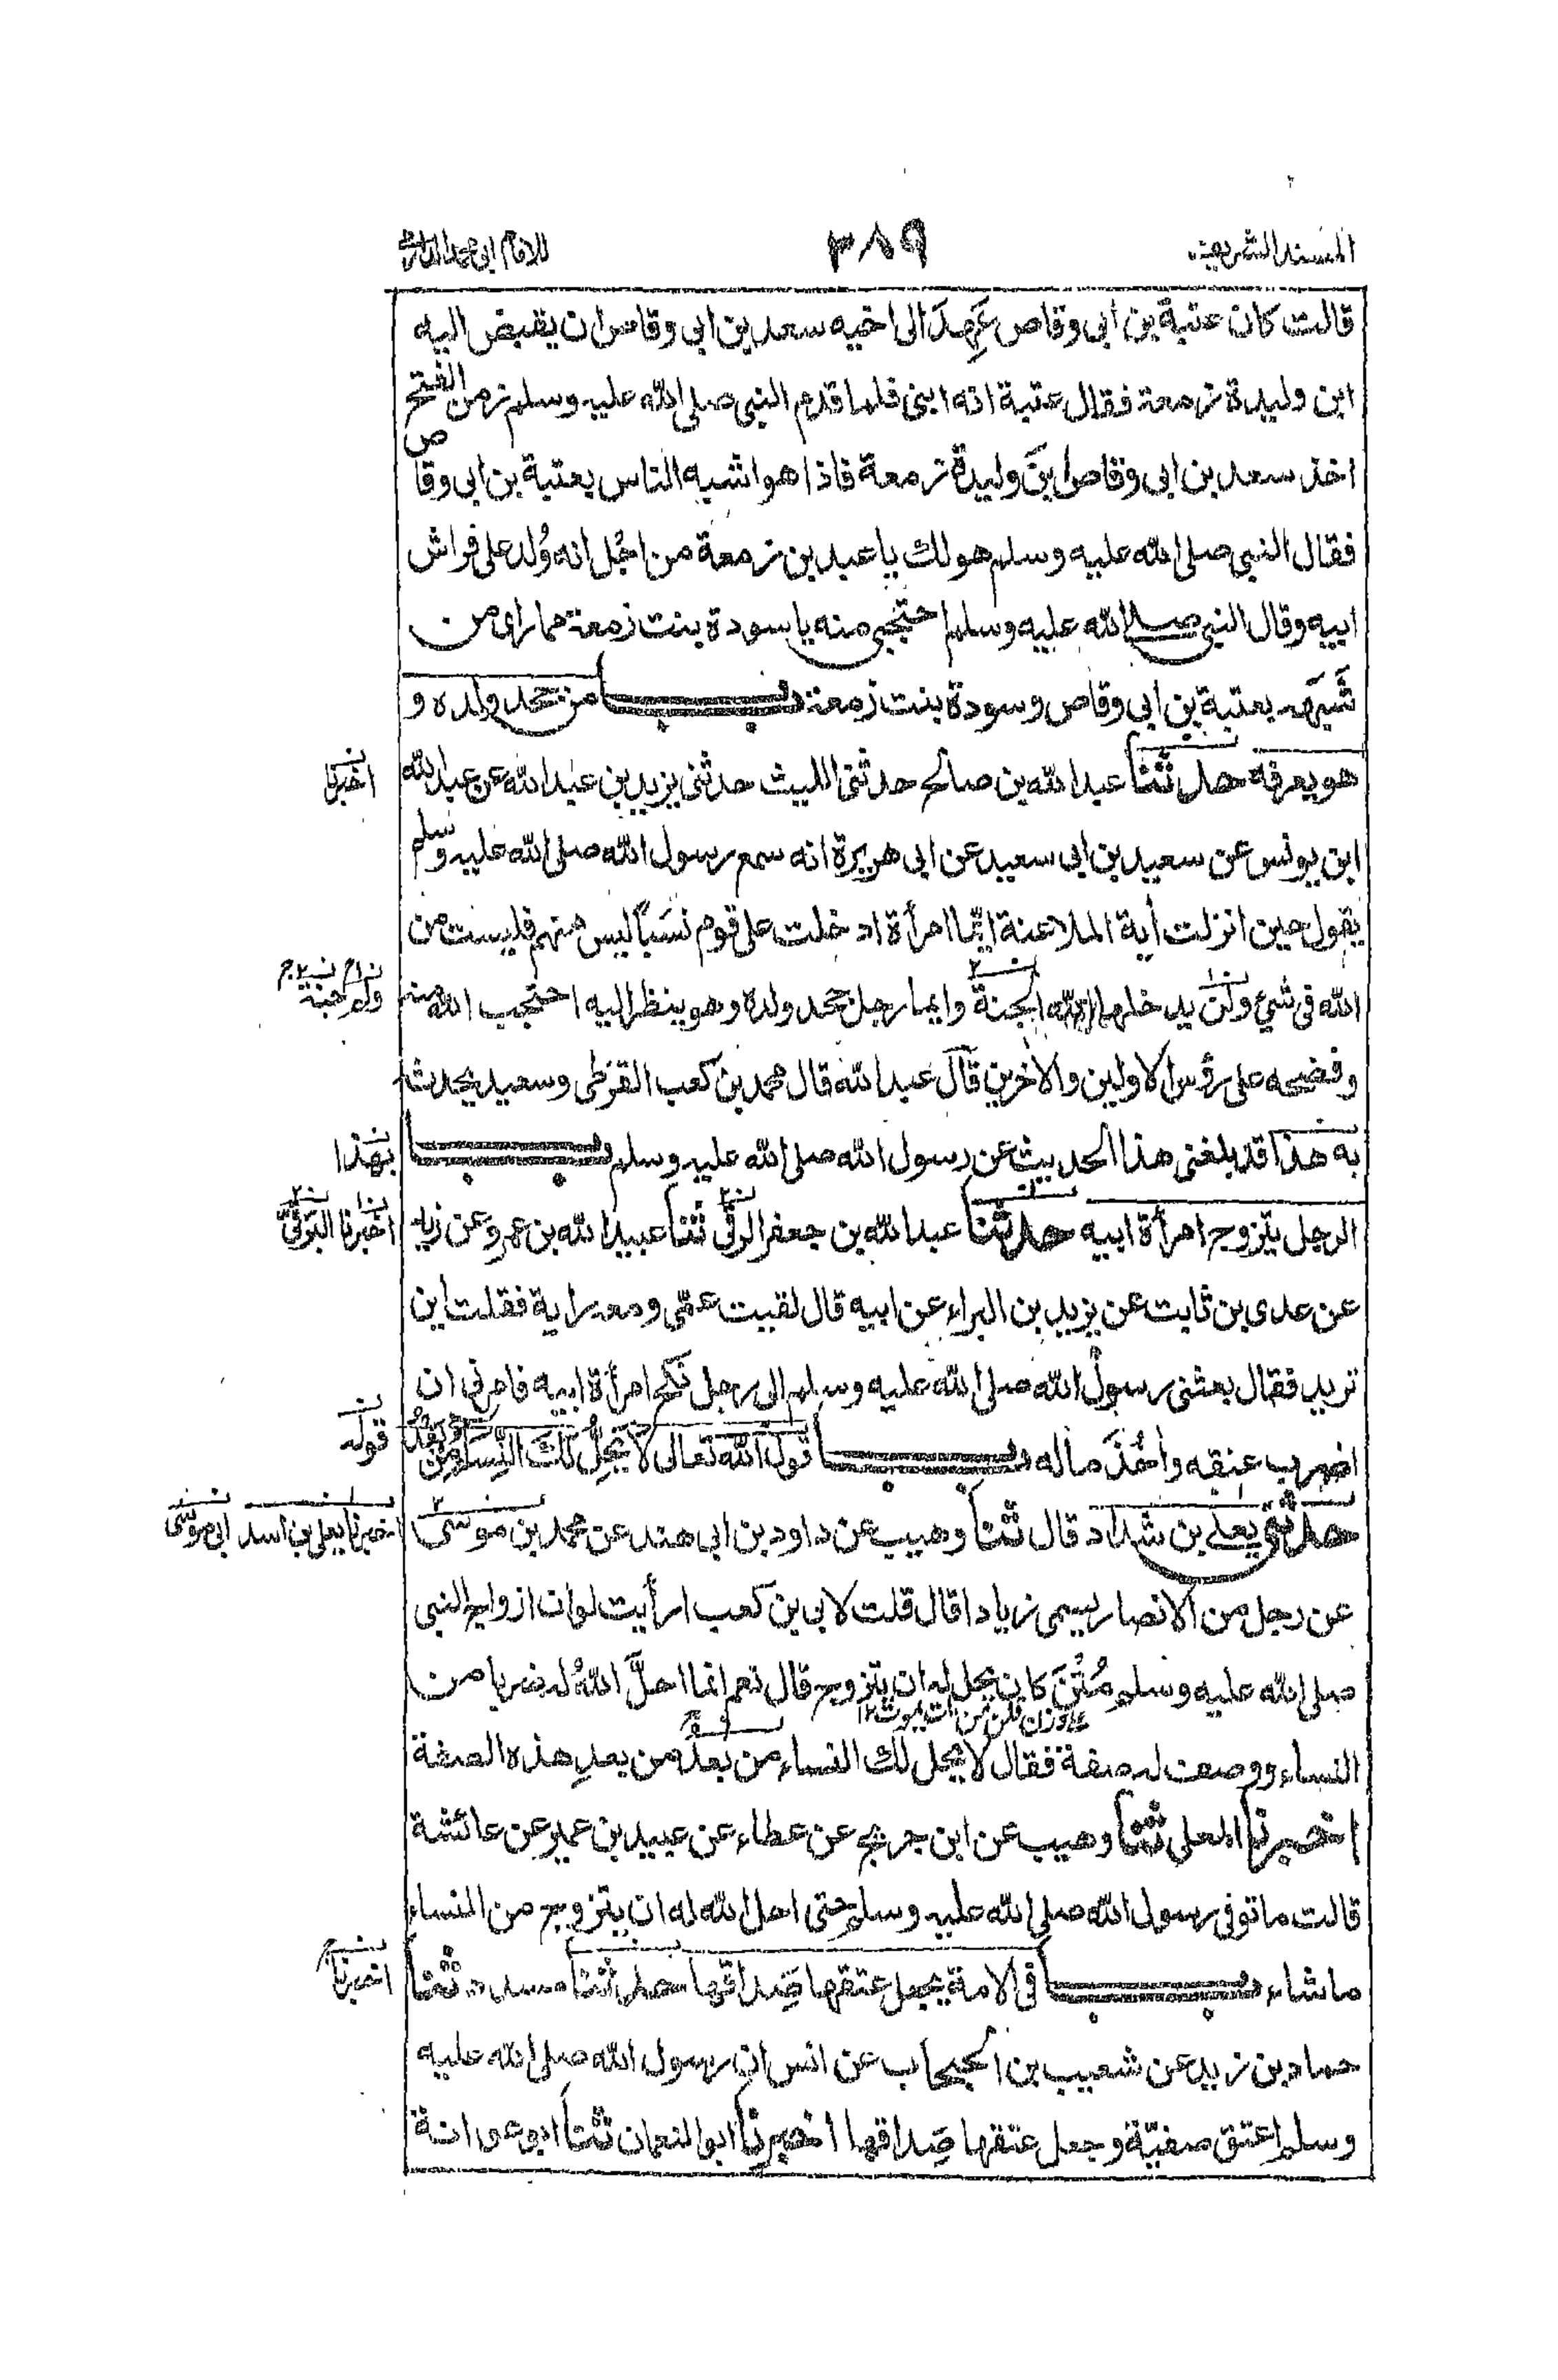 المسند الشريف ٣٨٩ للامام ابى محمد الدارمى
قالت كان عتبة بن ابى وقاص عَهِدَ الى اخيه سعد بن ابى وقاص ان يقبض اليه
ابن وليدة زمعة فقال عتبة انه ابنى فلما قدم النبى صلى الله عليه وسلم زمن الفتح
اخذ سعد بن ابى وقاص ابنَ وليدة زمعة فاذا هو اشبه الناس بعتبة بن ابى وقاص
فقال النبى صلى الله عليه وسلم هو لك يا عبد بن زمعة من اجْل انه وُلد على فراش
ابيه وقال النبى صلى الله عليه وسلم احتجبى منه يا سودة بنت زمعة مما راى من
شَبَهه بعتبة بن ابى وقاص وسودة بنت زمعة باب من جحد ولده و
هو يعرفه حدثنا عبد الله بن صالح حدثنى الليث حدثنى يزيد بن عبد الله عن عبد الله
اخبرنا
ابن يونس عن سعيد بن ابى سعيد عن ابى هريرة انه سمع رسول الله صلى الله عليه وسلم
يقول حين انزلت أية الملاعنة ايّما امرأة ادخلت على قوم نسَباً ليس منهم فليست من
الله فى شئ ولن يدخلها الله الجنة وايما رجل جحد ولده وهو ينظر اليه احتجب الله منه
ن١ ولم ن٢ جنته
وفضحه على رؤس الاولين والأخرين قال عبد الله قال محمد بن كعب القرظى وسعيد يحدثه
به هذا قد بلغنى هذا الحديث عن رسول الله صلى الله عليه وسلم باب
بهذا
الرجل يتزوج امرأة ابيه حدثنا عبد الله بن جعفر الرقى ثنا عبيد الله بن عمرو عن زيد
اخبرنا
عن عدى بن ثابت عن يزيد بن البراء عن ابيه قال لقيت عمّى ومعه راية فقلت اين
تريد فقال بعثنى رسول الله صلى الله عليه وسلم الى رجل نكح امرأة ابيه فامرنى ان
اضرب عنقه وأخُذَ ماله باب قول الله تعالى لَا يَحِلُّ لَكَ النِّسَاءُ مِنْ بَعْدُ
قوله
حدثنى يعلى بن شداد قال ثنا وهيب عن داود بن ابى هند عن محمد بن موسى
اخبرنا يعلى بن اسد ابى موسى
عن رجل من الانصار يسمى زيادا قال قلت لابى بن كعب ارأيت لو ان ازواج النبى
صلى الله عليه وسلم مُتْنَ كان يحل له ان يتزوج قال نعم انما احلَّ اللهُ له ضربا من
على وزن قلن من مات يموت ١٢
النساء ووصف له صفة فقال لا يحل لك النساء من بعدُ من بعدِ هذه الصفة
اخبرنا المعلى ثنا وهيب عن ابن جريج عن عطاء عن عبيد بن عمير عن عائشة
قالت ما توفى رسول الله صلى الله عليه وسلم حتى احل الله له ان يتزوج من النساء
ما شاء باب فى الامة يجعل عتقها صِداقها حدثنا مسدد ثنا
اخبرنا
حماد بن زيد عن شعيب بن الحبحاب عن انس ان رسول الله صلى الله عليه
وسلم اعتق صفيّة وجعل عتقها صِداقها اخبرنا ابو النعمان ثنا ابو عوانة